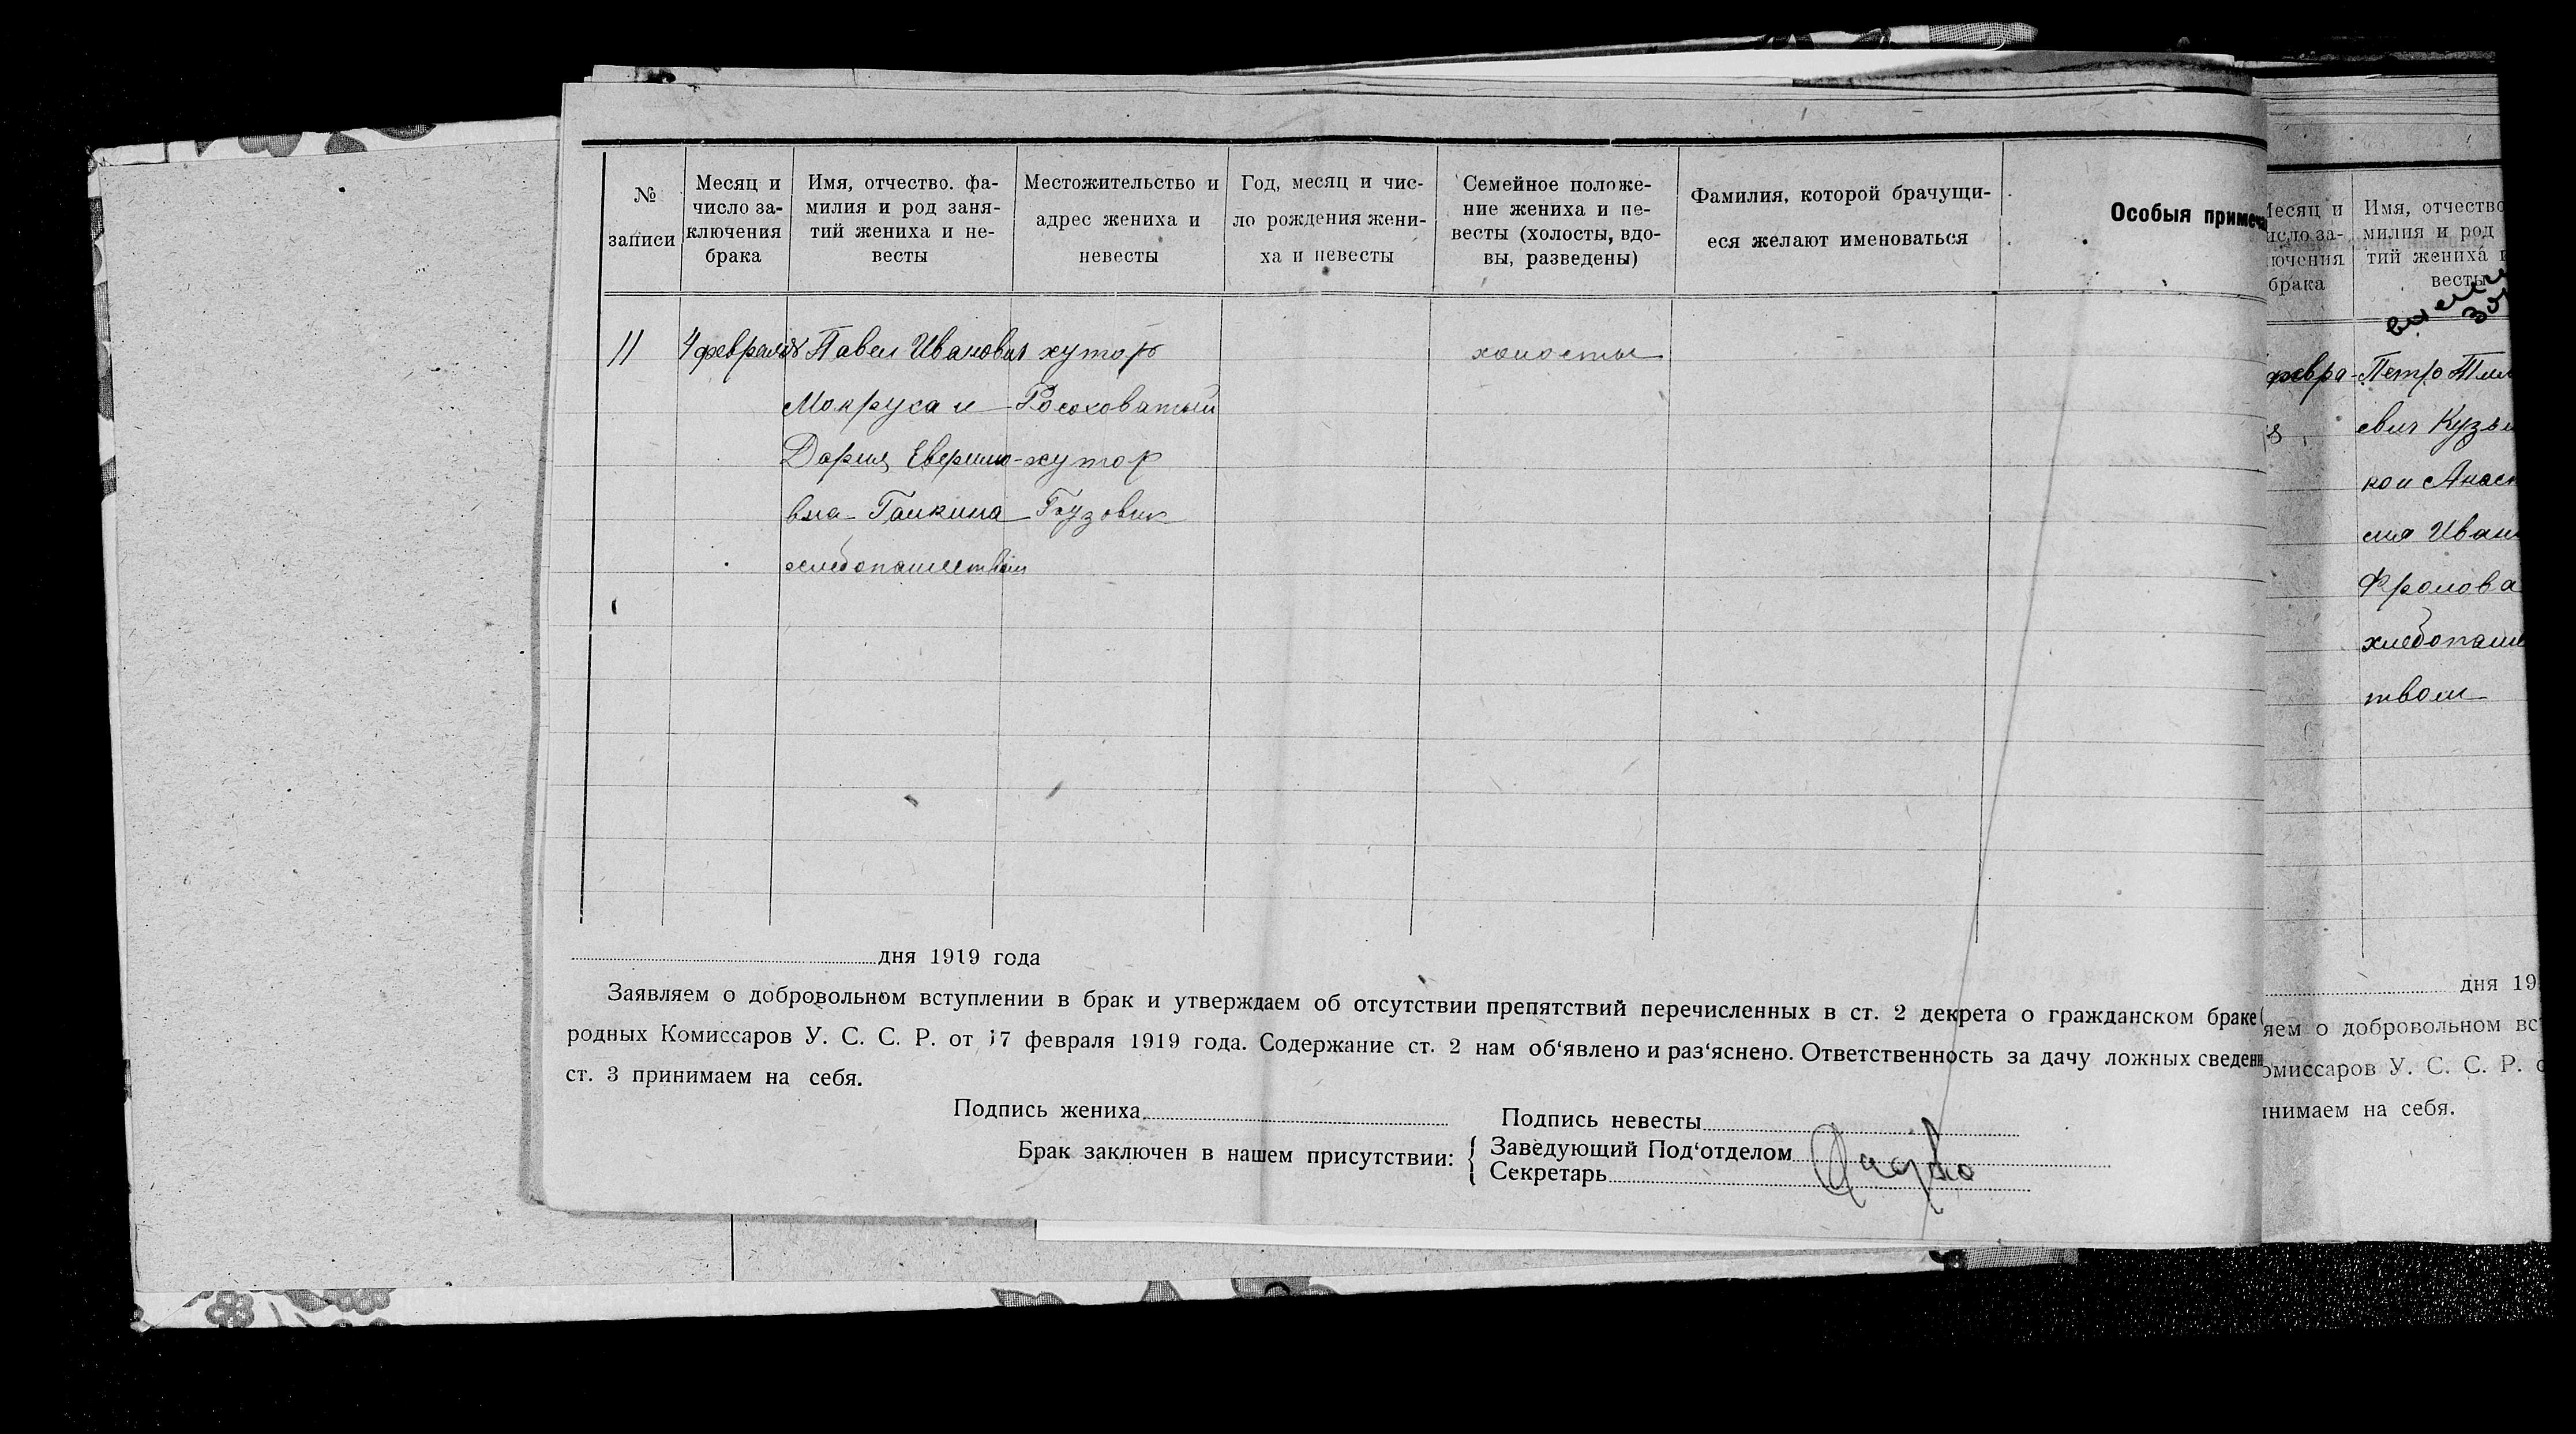 № записи
Месяц и число заключения брака
Имя, отчество. фамилия и род занятий жениха и невесты
Местожительство и адрес жениха и невесты
Год, месяц и число рождения жениха и невесты
Семейное положение жениха и невесты (холосты, вдовы, разведены)
Фамилия, которой брачущиеся желают именоваться
Особыя примеча
11 4 февраля Павел Иванович хуторь холосты
Мокруха и Росоховатый
Дария хутор
вна Галкина
хлебопашеством
дня 1919 года
Заявляем о добровольном вступлении в брак и утверждаем об отсутствии препятствий перечисленных в ст. 2 декрета о гражданском браке
родных Комиссаров У. С. С. Р. от 17 февраля 1919 года. Содержание ст. 2 нам об‘явлено и раз‘яснено. Ответственность за дачу ложных сведени
ст. 3 принимаем на себя.
Подпись жениха
Подпись невесты
Брак заключен в нашем присутствии:
Заведующий Под‘отделом
Секретарь
Месяц и
исло за-
лючения
брака
Имя, отчество
милия и род
тий жениха и
весты
февра- Петро
евич Кузь
кои Анас
сия Иван
Фролова
хлебопаш
твом
дня 19
яем о добровольном вс
омиссаров У. С. С. Р. о
инимаем на себя.